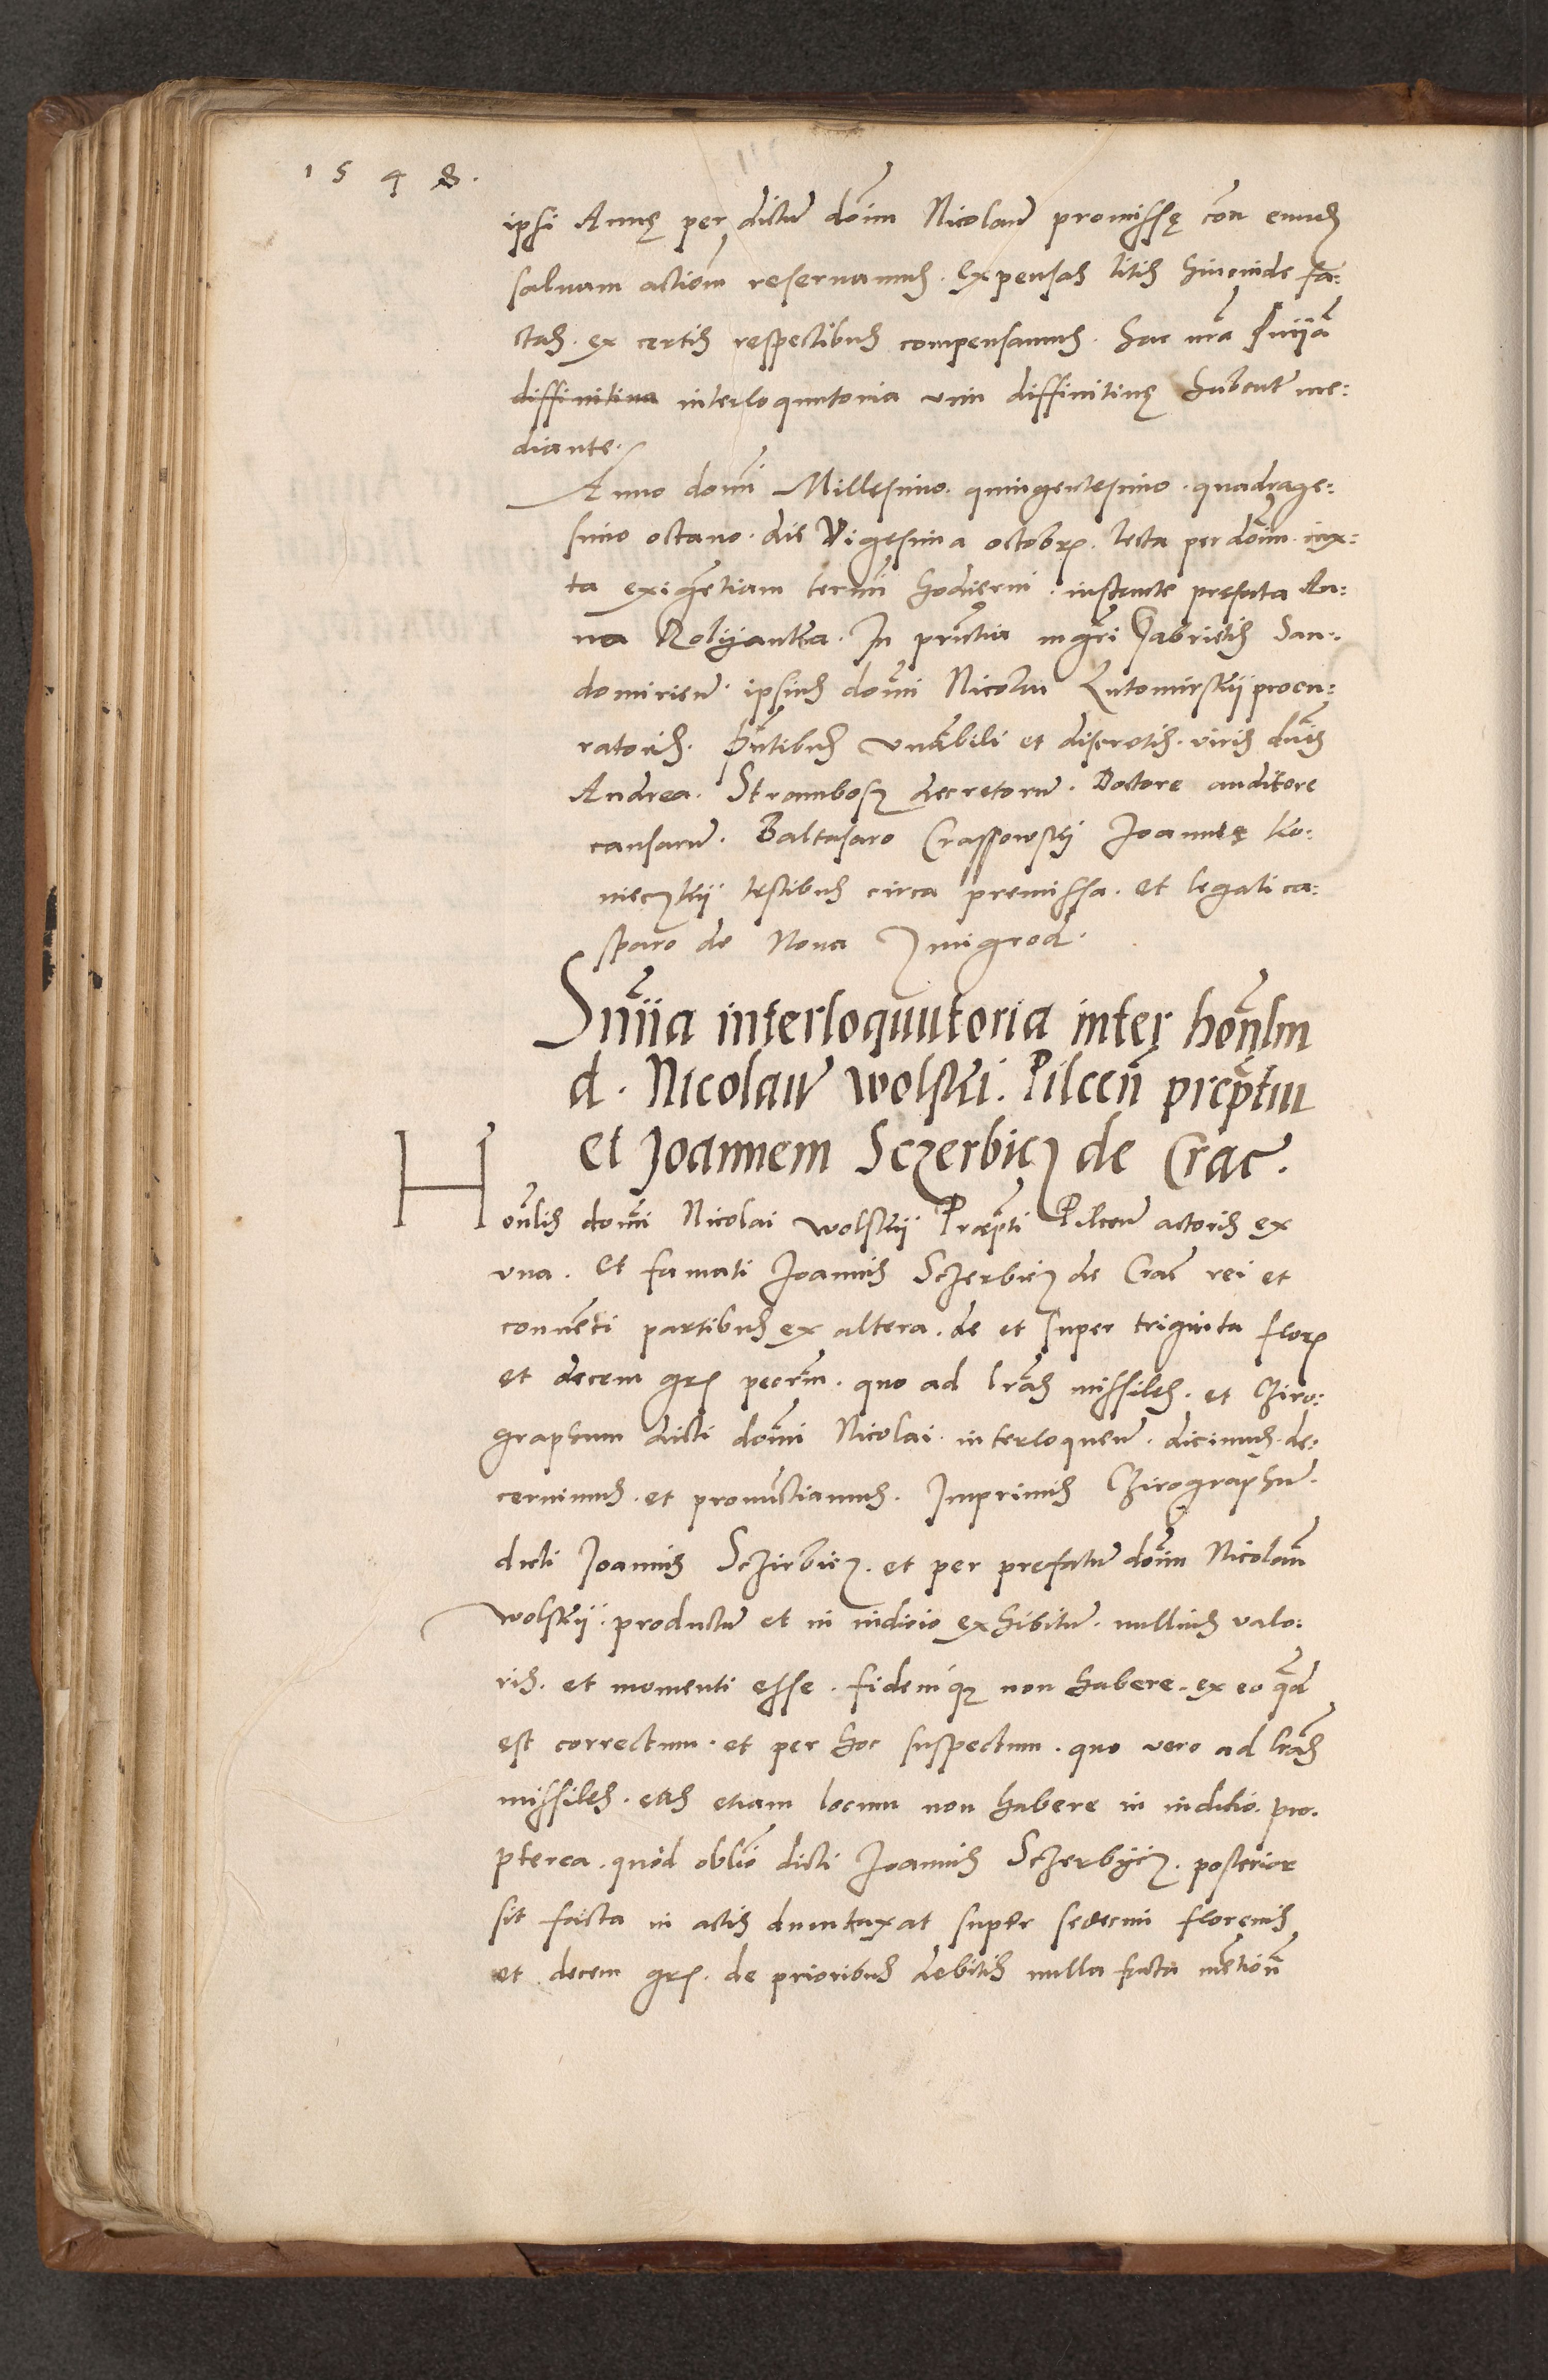 1548.
ipsi Annę per dictũ dom̃ Nicolaũ promissę cõn eundẽ
saluam actiõm reseruamus. Expensas litis hincinde fa:
ctas. ex certis respectibus compensamus. hac nrã Sniĩa
diffinitiua interloquutoria vim diffinitiuę habente me:
diante.
Anno domĩ Millesimo. quingentesimo. quadrage:
simo octauo. die Vigesima octobrẽ. lecta per dom̃. iux:
ta exigẽtiam termĩ hodierni. instante prefata An:
na In prñtia mgri Gabrielis San:
domirieñ. ipsius domĩ Nicolai Lutomirskij procu:
ratoris. Pñtibus vnãbili et discretis. viris dñis
Andrea. Strambosz decretorũ. Doctore auditore
causarũ. Baltasaro Crassowskij Joannę Ko:
nieczkij testibus circa premissa. et legali ca:
sparo de Noua Zmigrod.
Sñiia interloquutoria inter honlm
d. Nicolaũ wolski. Pilceñ preptm
et Joannem Sczerbicz de Crac̃.
Honlis domĩ Nicolai wolskij Præpti Pilceñ actoris ex
vna. Et famati Joannis Sczerbicz de Crac̃ rei et
conuẽti partibus ex altera. de et super triginta florẽ
et decem grẽ pecrm̃. quo ad lrãs missiles. et Chiro:
graphum dicti domĩ Nicolai. interloqueñ. dicimus. de:
cernimus. et pronũctiamus. Imprimis Chirographũ.
dicti Joannis Sczirbicz. et per prefatũ dom̃ Nicolaũ
wolskij. productũ et in iudicio exhibitũ. nullius valo:
ris. et momenti esse. fidemq̃ non habere. ex eo q̃d
est correctum. et per hoc suspectum. quo vero ad lrãs
missiles. etiam locum non habere in iuditio. pro.
pterea. quod oblio dicti Joannis Sczerbijcz. posterior
sit facta in actis dumtaxat super sedecim florenis
et decem grẽ. de prioribus debitis nulla facta mẽtionẽ